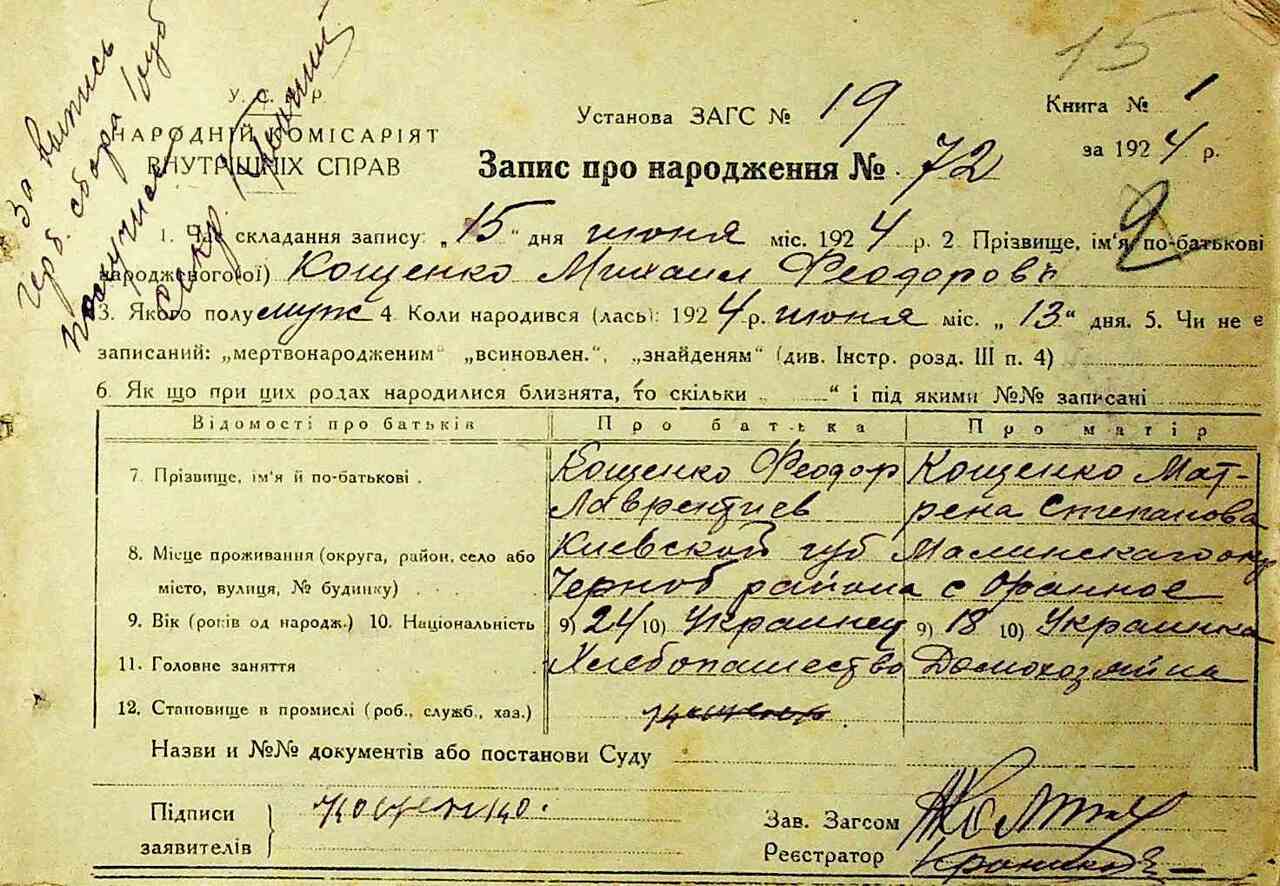 15
За выпись
герб. сбора 1 руб
получил
Секр.
У. С. Р. Р
НАРОДНІЙ КОМІСАРІЯТ
ВНУТРІШНІХ СПРАВ
Установа ЗАГС № 19
Книга № 1
за 1924 р.
Запис про народження № 72
2
1. Час складання запису: „15" дня июня міс. 1924 р. 2 Прізвище, ім'я, по-батькові
народженого(ої) Кощенко Михаил Феодоровъ
3. Якого полу муж 4. Коли народився (лась): 1924 р. июня міс. „13" дня. 5. Чи не є
записаний: „мертвонародженим" „всиновлен.", „знайденям" (див. Інстр. розд. III п. 4)
6. Як що при цих родах народилися близнята, то скільки „ " і під якими №№ записані
Відомості про батьків Про батька Про матір
7. Прізвище, ім'я й по-батькові . Кощенко Феодор Кощенко Мат-
Лаврентиев рена Степанова
8. Місце проживання (округа, район, село або Киевской губ Малинскаго окр
місто, вулиця, № будинку) Черноб района с Оранное
9. Вік (років од народж.) 10. Національність 9) 24 10) Украинец 9) 18 10) Украинка
11. Головне заняття Хлебопашество Домохозяйка
12. Становище в промислі (роб., служб., хаз.)
Назви и №№ документів або постанови Суду
Підписи
заявителів
Кощенко.
Зав. Загсом
Реєстратор